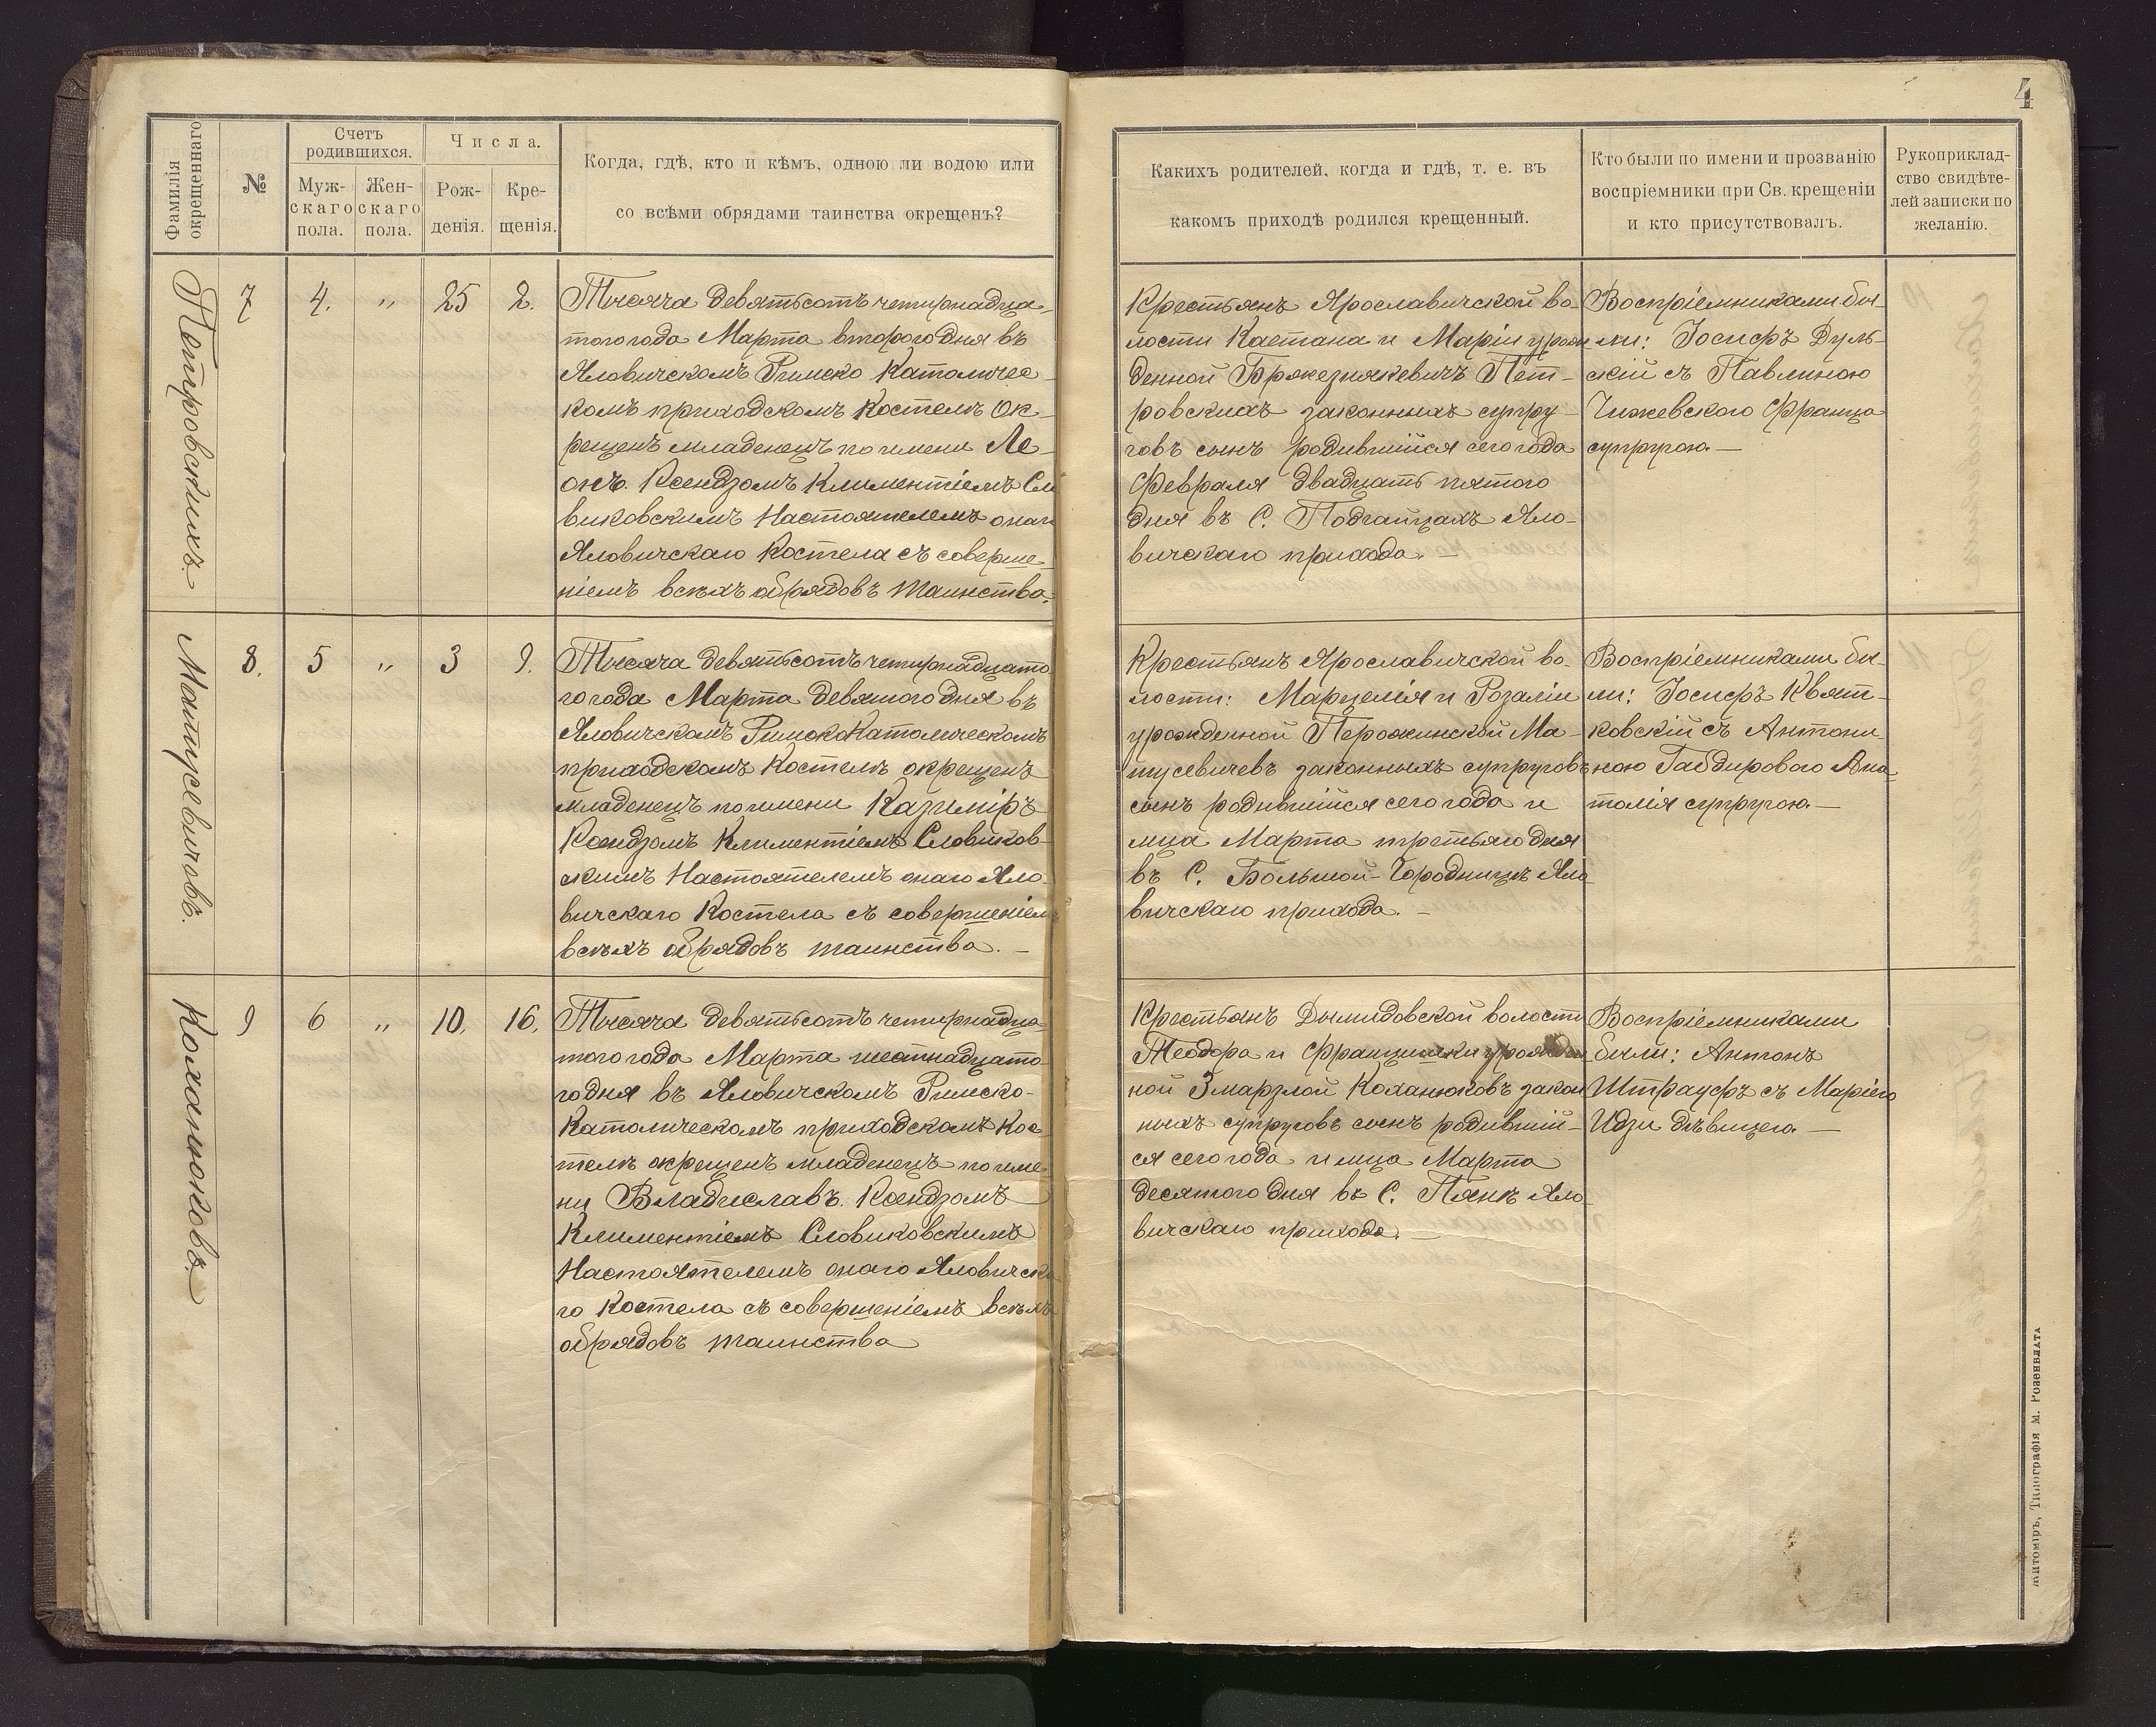 4
Фамилія
окрещеннаго
№
Счетъ
родившихся.
Муж-
скаго
пола.
Жен-
скаго
пола.
Числа.
Рож-
денія.
Кре-
щенія.
Когда, гдѣ, кто и кѣмъ, одною ли водою или
со всѣми обрядами таинства окрещенъ?
Какихъ родителей, когда и гдѣ, т. е. въ
какомъ приходѣ родился крещенный.
Кто были по имени и прозванію
воспріемники при Св. крещеніи
и кто присутствовалъ.
Рукоприклад-
ство свидѣте-
лей записки по
желанію.
Петровскихъ.
7
4.
"
25
2.
Тысяча девятьсотъ четырнадца-
того года Марта второго дня въ
Яловичскомъ Римско Католичес-
комъ приходскомъ Костелѣ ок-
рещенъ младенецъ по имени Ле-
онъ. Ксендзомъ Климентіемъ Сло
виковскимъ Настоятелемъ онаго
Яловичскаго Костела съ соверше-
ніемъ всѣхъ обрядовъ таинства.
Крестьянъ Ярославичской во-
лости Каетана и Маріи урож
денной Бржезнякевичъ Пет-
ровскихъ законныхъ супру-
говъ сынъ родившійся сего года
Февраля двадцать пятого
дня въ С. Подгайцахъ Яло-
вичскаго прихода. —
Воспріемниками бы-
ли: Іосифъ Дуль-
скій съ Павлиною
Чижевскаго Франца
супругою. —
Матусевичовъ.
8.
5
"
3
9.
Тысяча девятьсотъ четырнадцато
го года Марта девятого дня въ
Яловичскомъ Римско Католическомъ
приходскомъ Костелѣ окрещенъ
младенецъ по имени Казиміръ
Ксендзомъ Климентіемъ Словиков-
скимъ Настоятелемъ онаго Яло-
вичскаго Костела съ совершеніемъ
всѣхъ обрядовъ таинства. —
Крестьянъ Ярославичской во-
лости: Марцелія и Розаліи
урожденной Перожинской Ма-
тусевичевъ законныхъ супруговъ
сынъ родившійся сего года и
мца Марта третьяго дня
въ С. Большой-Городницѣ Яло
вичскаго прихода. —
Воспріемниками бы-
ли: Іосифъ Квят-
ковскій съ Антони-
ною Габдирового Ана
толія супругою. —
Коханюковъ.
9
6
"
10.
16.
Тысяча девятьсотъ четырнадца
того года Марта шестнадцато
го дня въ Яловичскомъ Римско-
Католическомъ приходскомъ Кос
телѣ окрещенъ младенецъ по име
ни Владиславъ. Ксендзомъ
Климентіемъ Словиковскимъ
Настоятелемъ онаго Яловичска
го Костела съ совершеніемъ всѣхъ
обрядовъ таинства
Крестьянъ Дымидовской волости
Теодора и Францишки урожден
ной Змарзлой Коханюковъ закон
ныхъ супруговъ сынъ родившій-
ся сего года и мца Марта
десятого дня въ С. Пянѣ Яло
вичскаго прихода. —
Воспріемниками
были: Антонъ
Штрауфъ съ Маріею
Идзи дѣвицею. —
Житоміръ, Типографія М. Розенблата